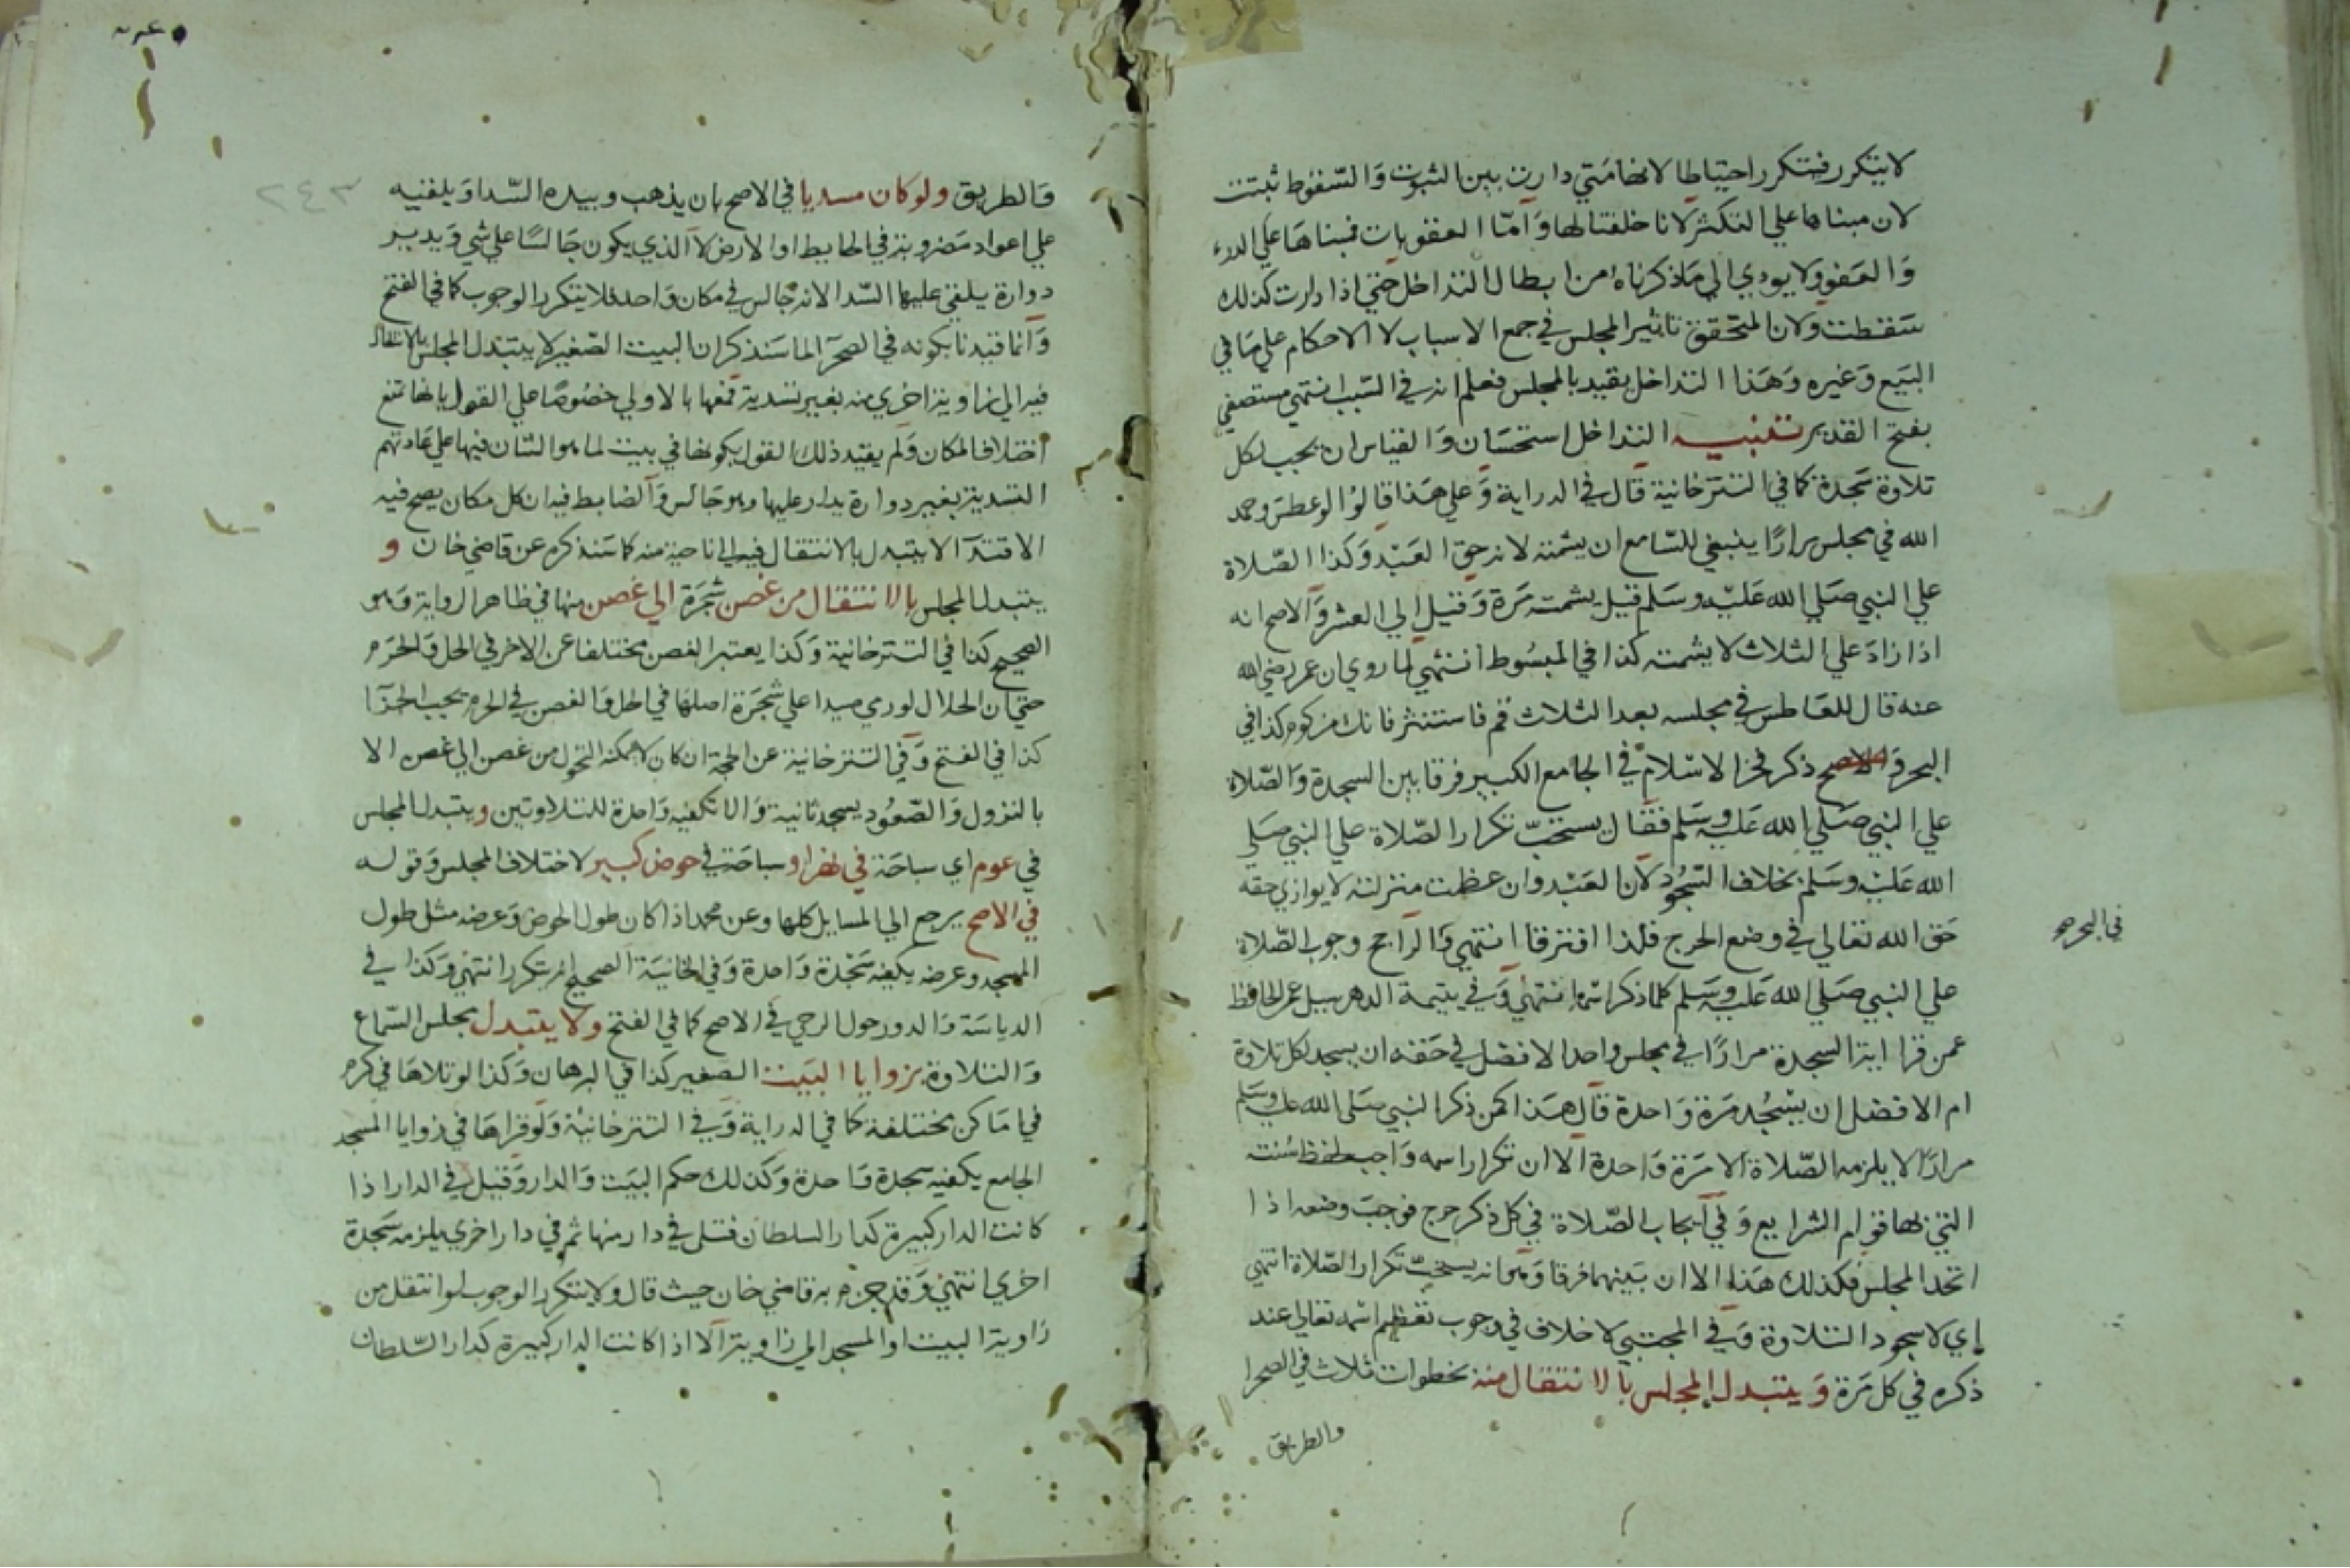 لا يتكرر فيتكرر احتياطا لانها متي دارت بين الثبوت والسقوط ثبتت
لان مبناها علي التكثر لانا خلقنا لها وامّا العقوبات فمبناها علي الدرء
والعفو ولا يودي الي ما ذكرناه من ابطال التداخل حتي اذا دارت كذلك
سقطت ولان المتحقق تاثير المجلس في جمع الاسباب لا الاحكام علي ما في
البيع وغيره وهذا التداخل يقيد بالمجلس فعلم انه في السبب انتهي مستصفي
بفتح القدير تنبيه التداخل استحسان والقياس ان يجب لكل
تلاوة سجدة كما في التترخانية قال في الدراية وعلي هذا قالوا لو عطس وحمد
الله في مجلس مرارًا ينبغي للسّامع ان يشمته لانه حق العبد وكذا الصّلاة
علي النبي صلي الله عليه وسلم قيل يشمته مرة وقيل الي العشر والاصح انه
اذا زاد علي الثلاث لا يشمته كذا في المبسوط انتهي لما روي ان عمر رضي الله
عنه قال للعاطس في مجلسه بعد الثلاث قم فاستنثر فانك مزكوم كذا في
البحر والاصح ذكر فخر الاسلام في الجامع الكبير فرقا بين السجدة والصّلاة
علي النبي صلي الله عليه وسلم فقال يستحبّ تكرار الصّلاة علي النبي صلي
الله عليه وسلم بخلاف السّجود لان العبد وان عظمت منزلته لا يوازي حقه
حق الله تعالي في وضع الحرج فلذا افترقا انتهي والراجح وجوب الصّلاة
في البحر صح
علي النبي صلي الله عليه وسلم كلما ذكر اسمه انتهي وفي يتيمة الدهر سيل عمر الحافظ
عمن قرا اية السجدة مرارًا في مجلس واحد الافضل في حقه ان يسجد لكل تلاوة
ام الافضل ان يسجد مرة واحدة قال هذا كمن ذكر النبي صلي الله عليه وسلم
مرارًا لا يلزمه الصّلاة الا مرة واحدة الا ان تكرار اسمه واجب لحفظ سنته
التي بها قوام الشرايع وفي ايجاب الصّلاة في كل ذكر حرج فوجب وضعه اذا
اتحد المجلس فكذلك هذا الا ان بينهما فرقا وهو انه يستحبّ تكرار الصّلاة انتهي
اي لا سجود التلاوة وفي المجتبي لا خلاف في وجوب تعظيم اسمه تعالي عند
ذكره في كل مرة ويتبدل المجلس بالانتقال منه بخطوات ثلاث في الصحرا
والطريق
٢٤٣
والطريق ولو كان مسديا في الاصح بان يذهب وبيده السّدا ويلقيه
علي اعواد مضروبة في الحايط او الارض لا الذي يكون جالسًا علي شي ويدير
دوارة يلقي عليها السّدا لانه جالس في مكان واحد فلا يتكرر الوجوب كما في الفتح
وانما قيدنا بكونه في الصحرا لما سنذكر ان البيت الصّغير لا يتبدل المجلس بالانتقال
فيه الي زاوية اخري منه بغير تسدية فمعها بالاولي خصوصًا علي القول بانها تمنع
اختلاف المكان ولم يقيد ذلك القول بكونها في بيت لما هو الشان فيها علي عادتهم
التسدية بغير دوارة يدار عليها وهو جالس والضابط فيه ان كل مكان يصح فيه
الاقتدا لا يتبدل بالانتقال فيه الي ناحية منه كما سنذكره عن قاضي خان و
يتبدل المجلس بالانتقال من غصن شجرة الي غصن منها في ظاهر الرواية وهو
الصحيح كذا في التترخانية وكذا يعتبر الغصن مختلفا عن الاخر في الحل والحرم
حتي ان الحلال لو رمي صيدا علي شجرة اصلها في الحل والغصن في الحرم يجب الجزا
كذا في الفتح وفي التترخانية عن الحجة ان كان لا يمكنه التحول من غصن الي غصن الا
بالنزول والصّعود يسجد ثانية والا تكفيه واحدة للتلاوتين ويتبدل المجلس
في عوم اي سباحة في نهر او سباحته في حوض كبير لاختلاف المجلس وقوله
في الاصح يرجع الي المسايل كلها وعن محمد اذا كان طول الحوض وعرضه مثل طول
المسجد وعرضه يكفيه سجدة واحدة وفي الخانية الصحيح انه يتكرر انتهي وكذا في
الدياسة والدور حول الرحي في الاصح كما في الفتح ولا يتبدل مجلس السّماع
والتلاوة بزوايا البيت الصغير كذا في البرهان وكذا لو تلاها في كرم
في اماكن مختلفة كما في الدراية وفي التترخانية ولو قراها في زوايا المسجد
الجامع يكفيه سجدة واحدة وكذلك حكم البيت والدار وقيل في الدار اذا
كانت الدار كبيرة كدار السلطان فتلي في دار منها ثم في دار اخري يلزمه سجدة
اخري انتهي وقد جزم به قاضي خان حيث قال ولا يتكرر الوجوب لو انتقل من
زاوية البيت او المسجد الي زاوية الا اذا كانت الدار كبيرة كدار السّلطان